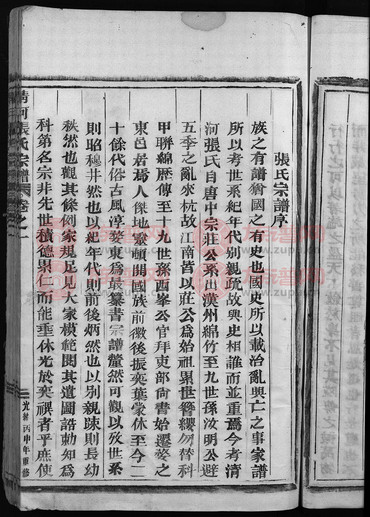 張氏宗譜序
族之有譜猶國之有史也國史所以載治亂興亡之事家譜
所以考世系紀年代別親疏故與史相誰而並重焉今考清
河張氏自唐中宗莊公系出漢州綿竹至九世孫汝明公避
五季之亂來杭故江南皆以莊公為始祖累世簪纓勿替科
甲聯綿歷傳至十九世孫西峯公官拜東部尚書始遷婺之
東邑君為人傑地靈頓開國族前徽後振奕葉蒙休至今二
十餘代俗古風淳婺東為最纂書宗譜釐然可觀以攷世系
則昭穆井然也以紀年代則前後炳然也以別親疎則長幼
秩然也觀其條例家規足見大家模範閱其遺圖誥勅知為
科第名宗非先世積德累仁而能垂休光於奕禩者乎庶使
清河張氏宗譜
卷之一
光緒丙申年重修